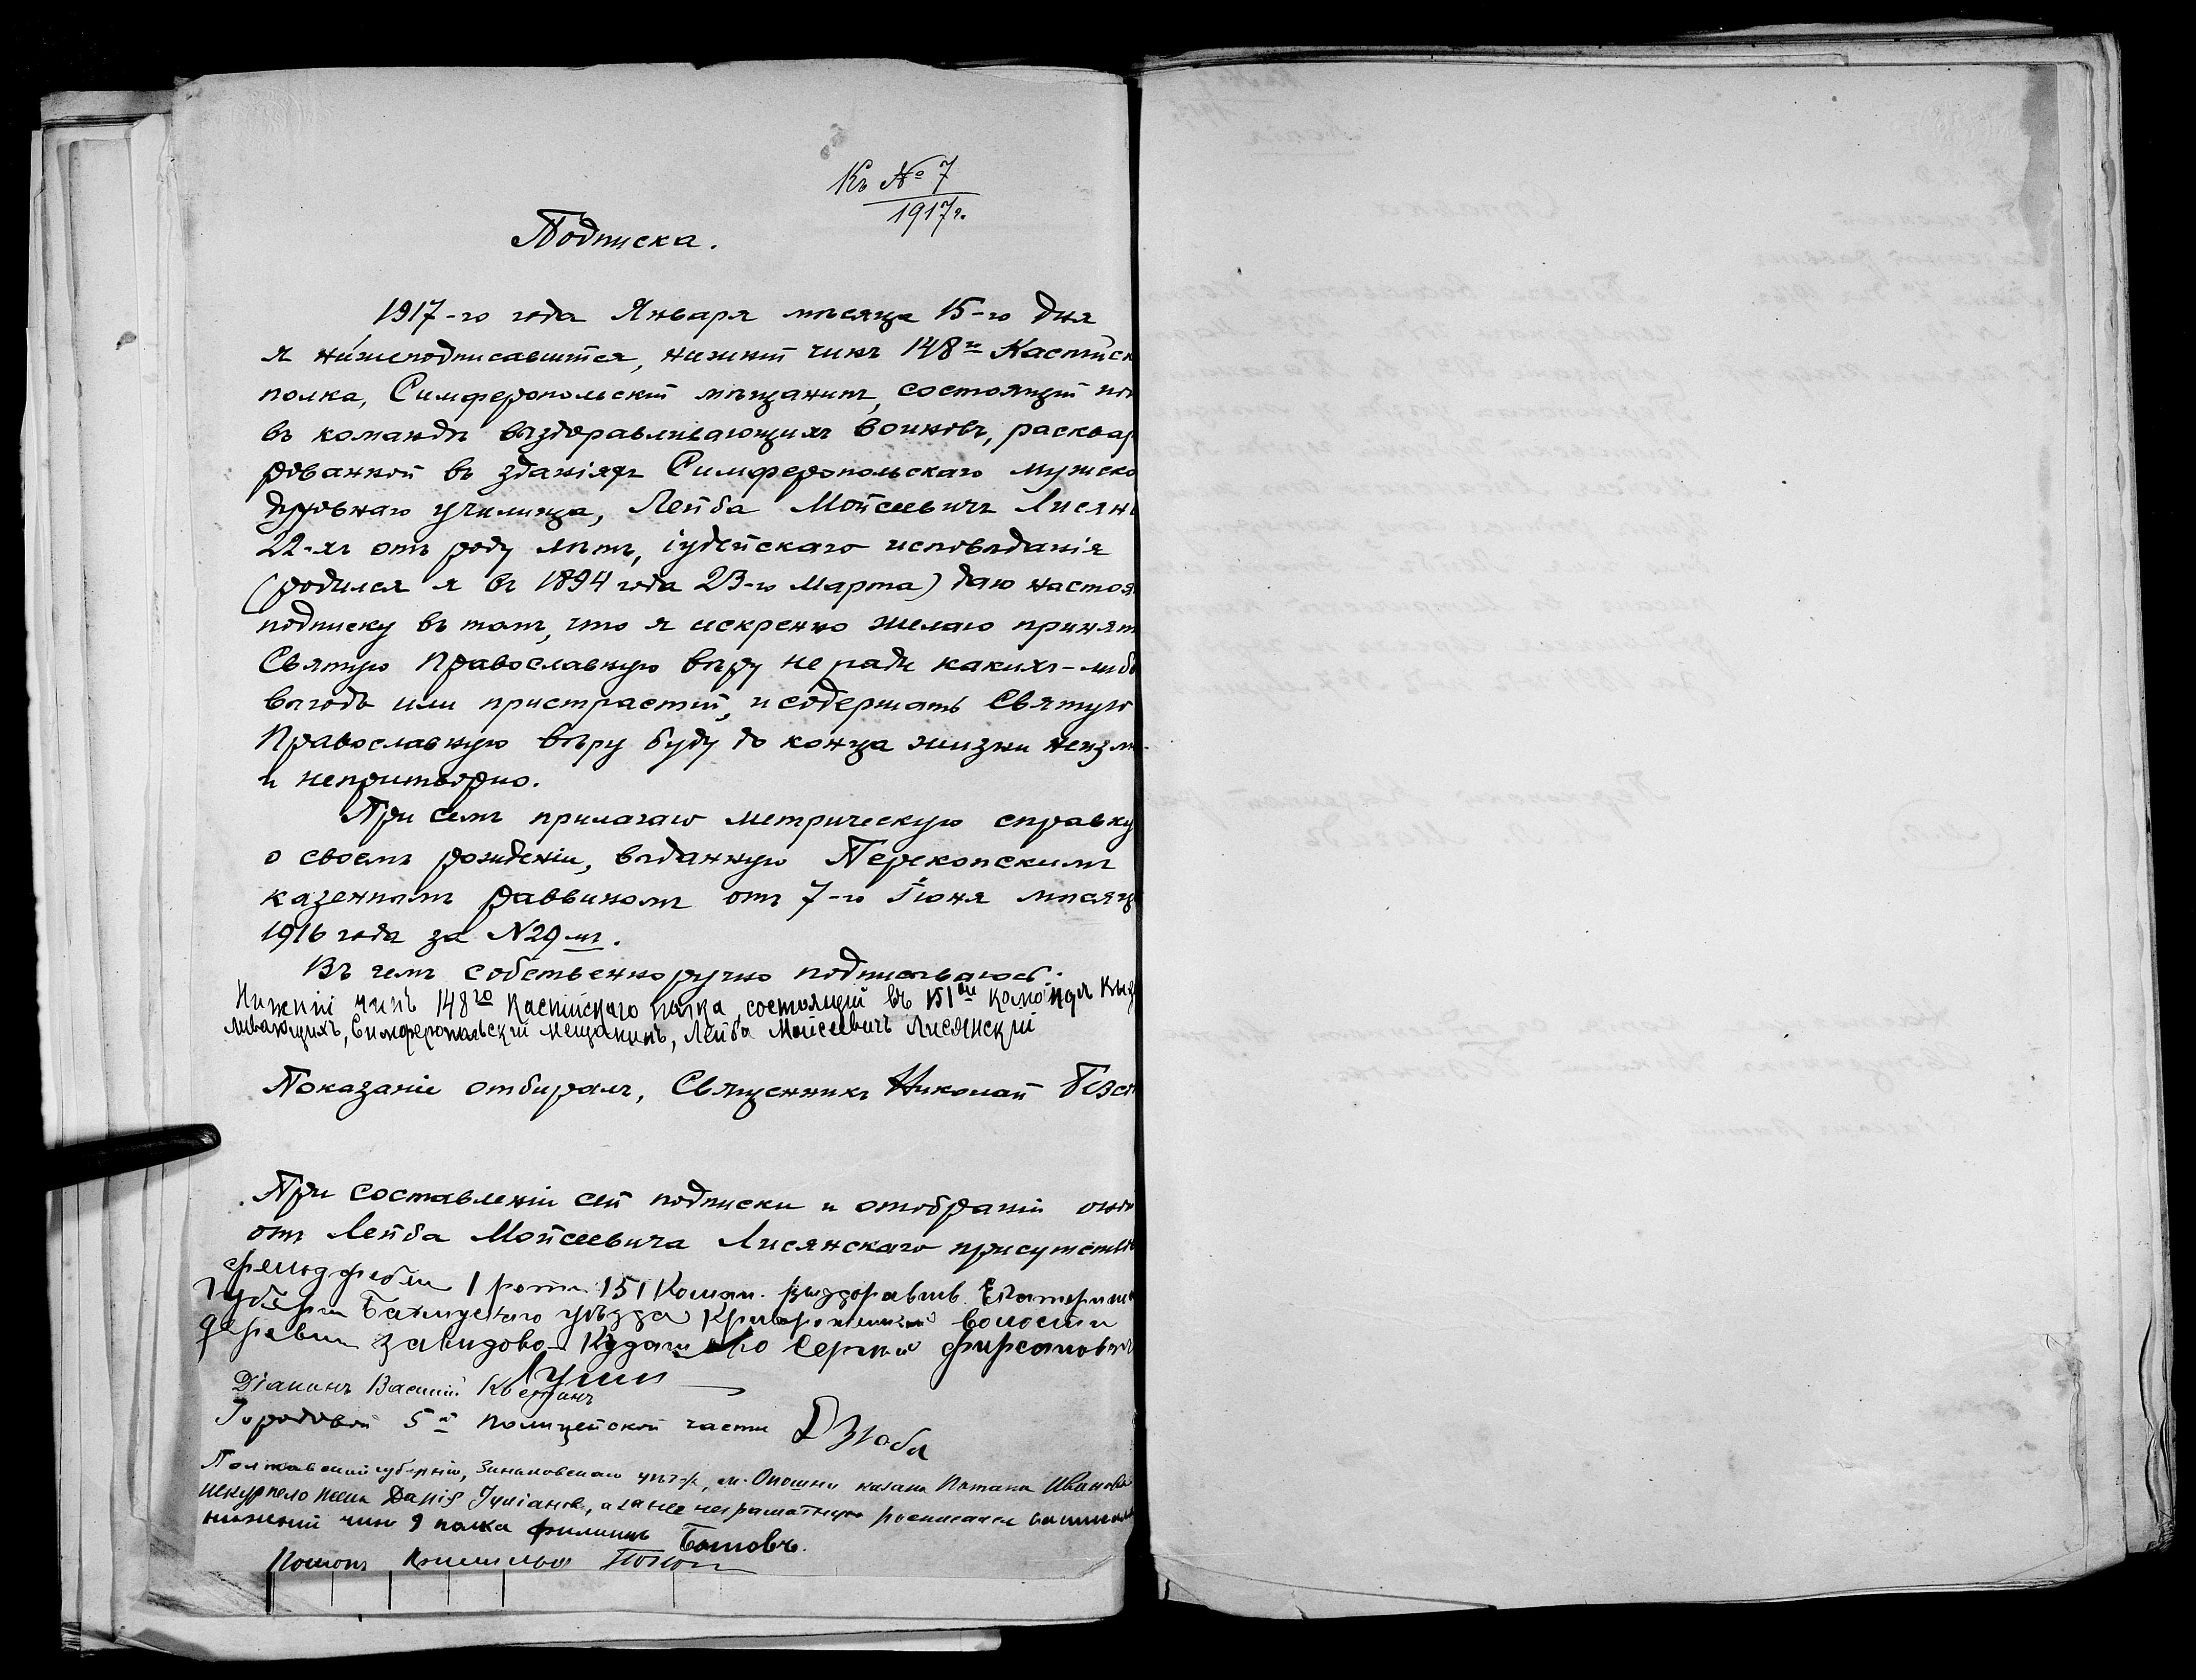 Къ № 7
1917 г.
Подписка.
1917-го года Января мѣсяца 15-го дня
я нижеподписавшійся, нижній чинъ 148го Каспійск
полка, Симферопольскій мѣщанинъ, состоящій
въ командѣ выздоравливающихъ воиновъ, расквар
рованной въ зданіяхъ Симферопольскаго мужско
духовнаго училища, Лейба Мойсеевичъ Лисян
22-хъ отъ роду лѣтъ, іудейскаго исповѣданія
(родился я въ 1894 года 23-го Марта) даю настоя
подписку въ томъ, что я искренно желаю принят
Святую Православную вѣру не ради какихъ-либо
выгодъ или пристрастій, и содержать Святую
Православную вѣру буду до конца жизни неизм
и непритворно.
При семъ прилагаю метрическую справку
о своемъ рожденіи, выданную Перекопскимъ
казеннымъ раввиномъ отъ 7-го Іюня мѣсяца
1916 года за №29мъ.
Въ чемъ собственноручно подписываюсь.
Нижній чинъ 148го Каспійскаго полка, состоящій въ 151ой командѣ выз
ливающихъ, Симферопольскій мещанинъ, Лейба Мойсеевичъ Лисянскій
Показаніе отбиралъ, Священникъ Николай
При составленіи сей подписки и отобраніи
отъ Лейба Мойсеевича Лисянскаго присутств
фельдфебель 1 роты 151 Коман. выздоравлив. Екатерин
Губерніи Бахмутскаго уѣзда волости
деревни Сергѣй Фирсановичъ
Діаконъ Василій
Городовой 5й полицейской части Дзюба
Полтавской губерніи, Зиньковскаго уѣзда, м. Опошни казака Ивано
жена, а за нее неграмотную росписался
нижній чинъ 9 полка ФилиппъБотовъ.